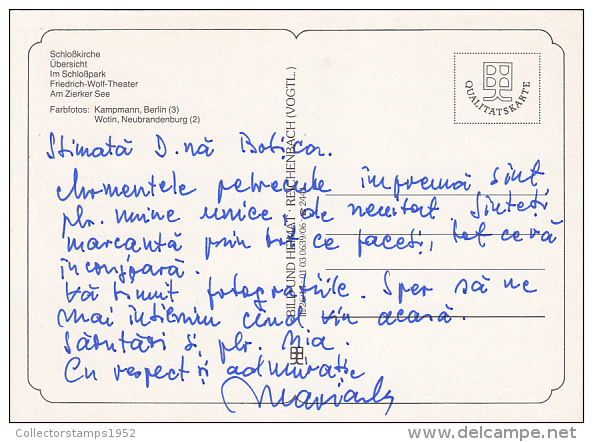 Schloßkirche
Übersicht
Im Schloßpark
Friedrich-Wolf-Theater
Am Zierker See
Farbfotos: Kampmann, Berlin (3)
Wotin, Neubrandenburg (2)
QUALITÄTSKARTE
BILD UND HEIMAT · REICHENBACH (VOGTL.)
Stimată D.nă
Momentele petrecute împreună sînt
ptr. mine unice, de neuitat. Sînteți
marcantă prin tot ce faceți, tot ce vă
înconjoară.
Vă trimit fotografiile. Sper să ne
mai întîlnim cînd vin acasă.
Sărutări și ptr. Mia.
Cu respect și admirație
Collectorstamps1952
delcampe.net